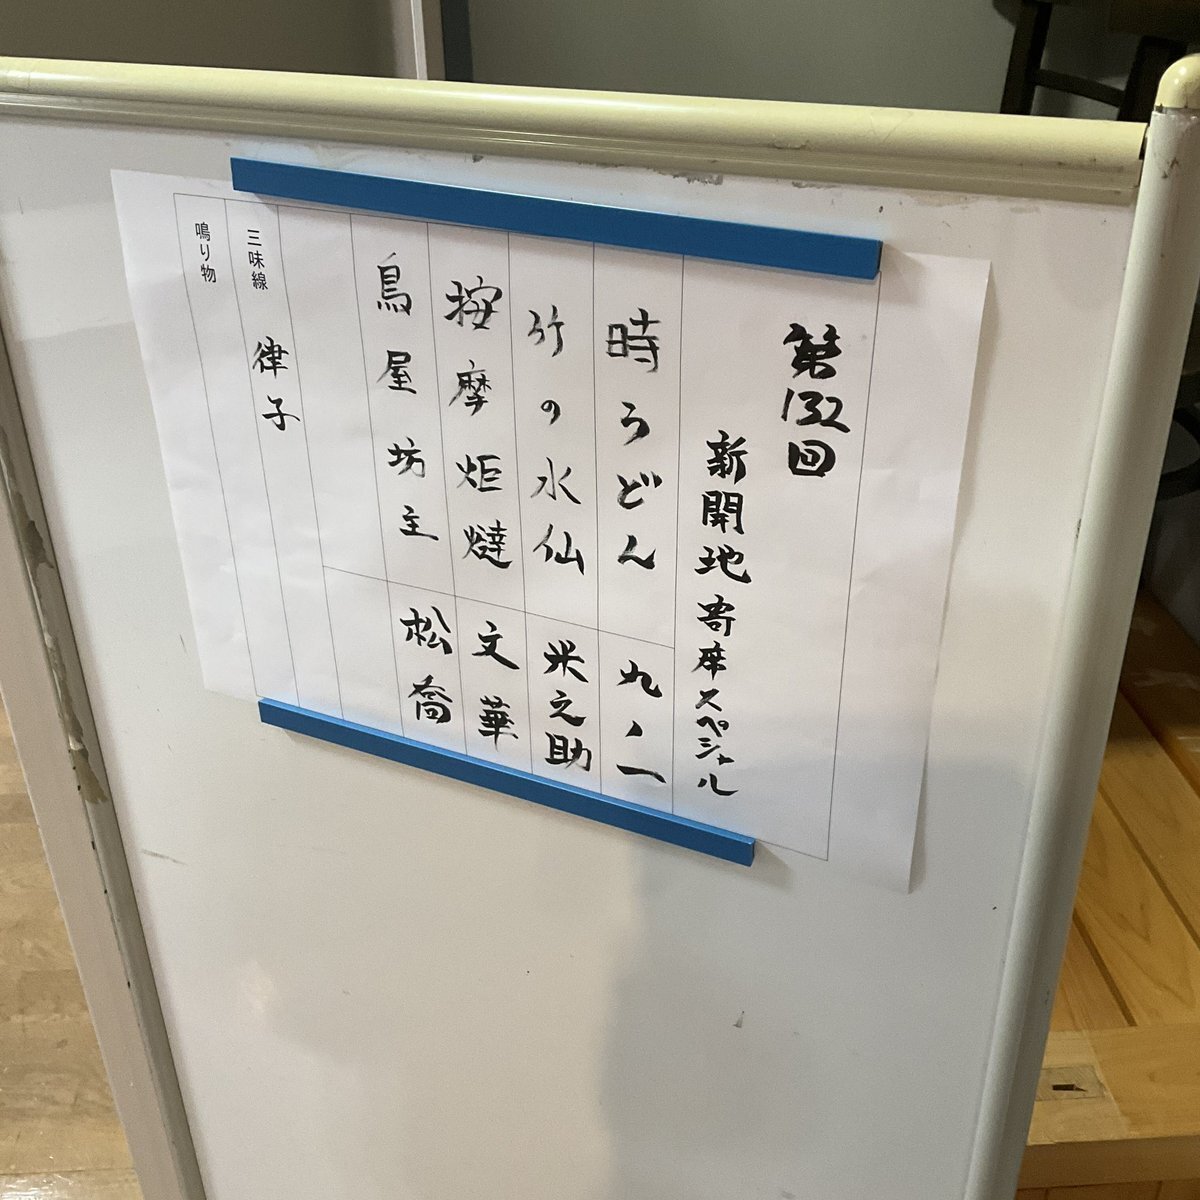 第132回
新開地寄席スペシャル
時うどん 九ノ一
竹の水仙 米之助
按摩炬燵 文華
鳥屋坊主 松喬
三味線 律子
鳴り物